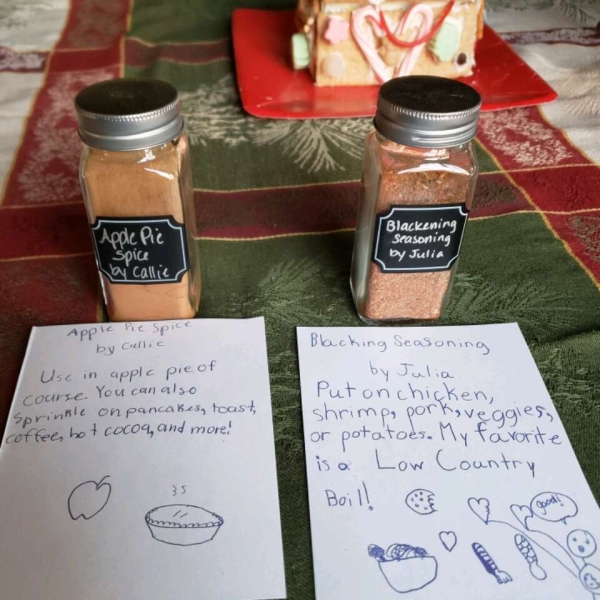 Apple Pie
Spice
by Callie
Blackening
Seasoning
by Julia
Apple Pie Spice
by Callie
Use in apple pie of
course. You can also
Sprinkle on pancakes, toast,
coffee, hot cocoa, and more!
Blacking Seasoning
by Julia
Put on chicken,
shrimp, pork, veggies,
or potatoes. My favorite
is a Low Country
Boil!
good!